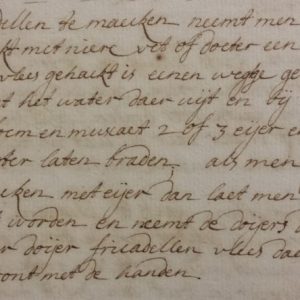 dellen te maecken neemt men
kt met niere vet of doeter een
vlees gehackt is eenen wegge ge
t het water daer uijt en bij
oem en muscaet 2 of 3 eijer en
ter laten braden, als men
cken met eijer dan laet men
t worden en neemt de doijers d
r doijer fricadellen vlees dae
ront met de handen